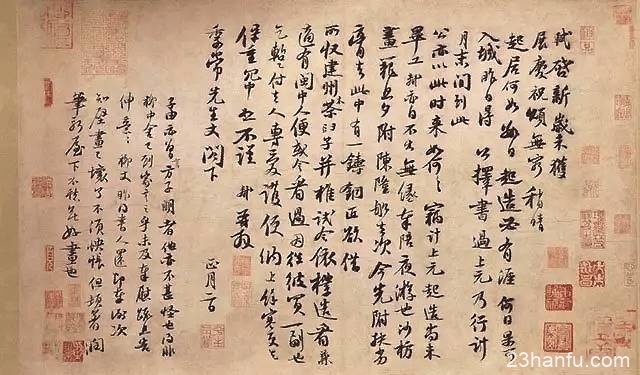 軾啓新歲未獲
展慶祝頌無窮稍晴
起居何如數日起造必有涯何日果可
入城昨日得公擇書過上元乃行計
月末間到此
公亦以此時來如何々竊計上元起造尚未
畢工軾亦自不出無緣奉陪夜游也沙枋
畫籠旦夕附陳隆船去次今先附扶劣
膏去此中有一鑄銅匠欲借
所收建州木茶臼子并椎試令依樣造看兼
適有閩中人便或令看過因往彼買一副也
乞暫付去人專愛護便納上餘寒更乞
保重冗中恕不謹 軾再拜
季常先生丈閣下
正月二日
子由亦曾言方子明者他亦不甚怪也得非
柳中舍已到家言之乎未及奉慰疏且告
伸意々柳丈昨得書人還即奉謝次
知壁畫已壞了不須怏悵但頓著潤
筆新屋下不愁無好畫也
23hanfu.com